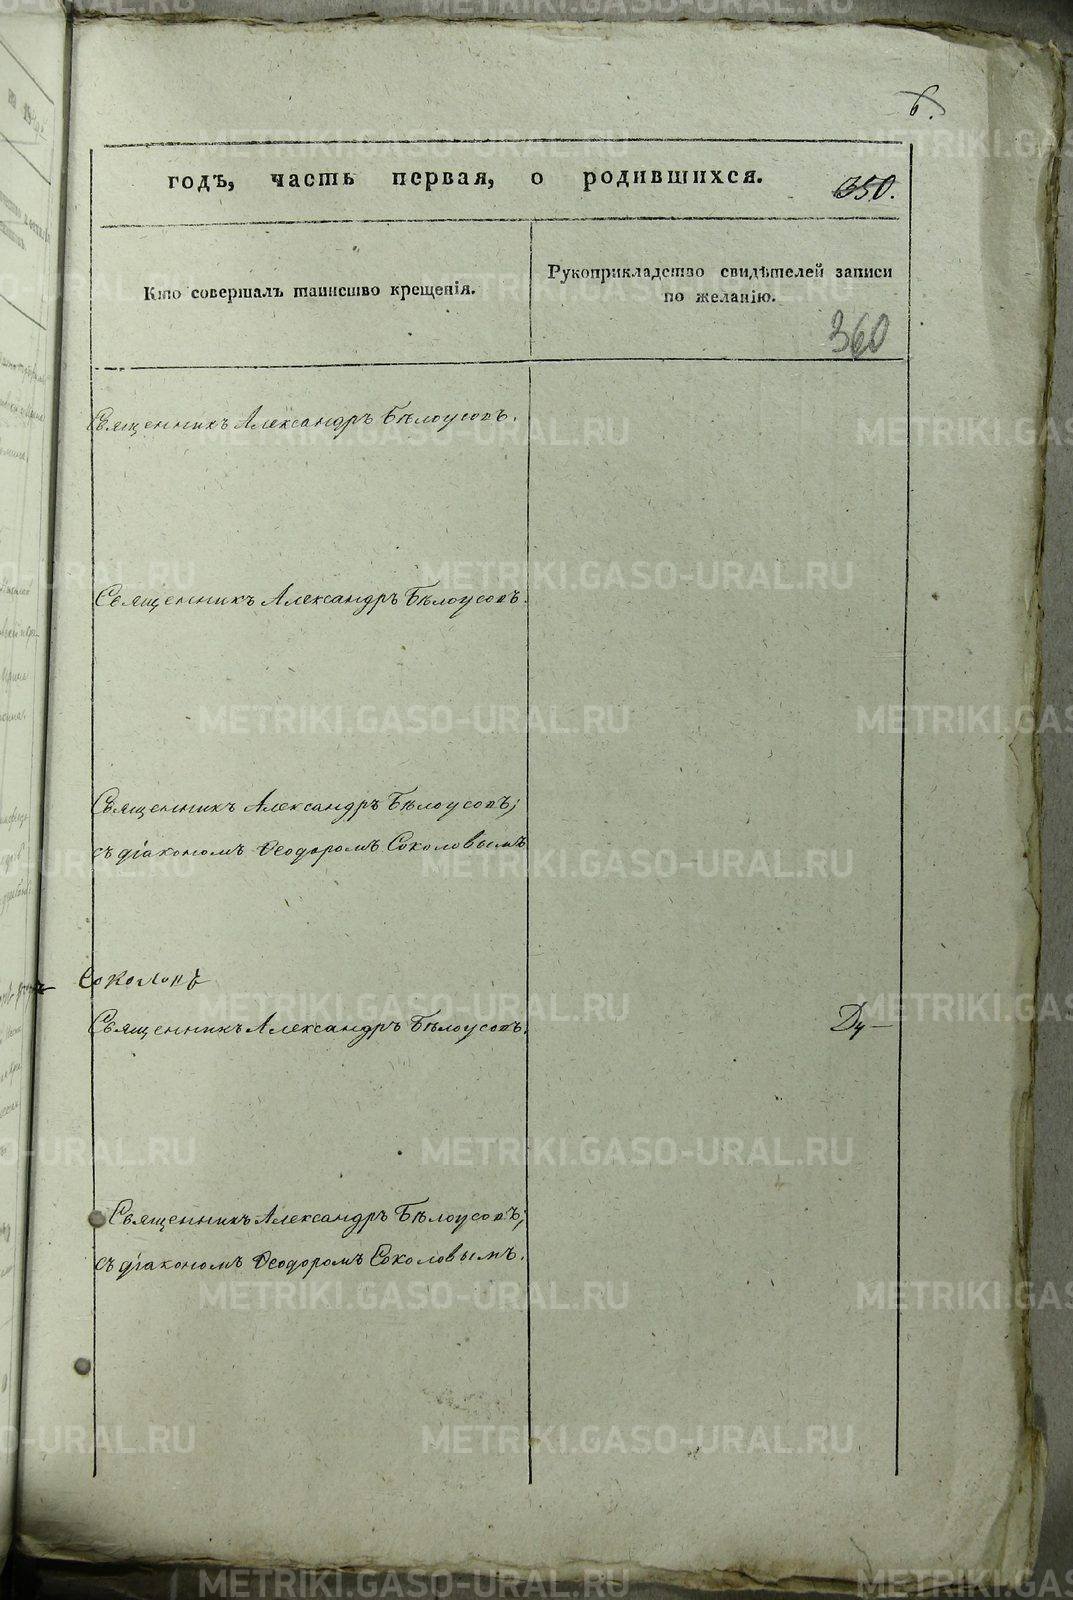 6.
годъ, часть первая, о родившихся.
350.
Кто совершалъ таинство крещенія.
Рукоприкладство свидѣтелей записи
по желанію.
360
Священникъ Александръ Бѣлоусовъ.
Священникъ Александръ Бѣлоусовъ.
Священникъ Александръ Бѣлоусовъ;
съ діакономъ Ѳеодоромъ Соколовымъ
Соколовъ
Священникъ Александръ Бѣлоусовъ.
Священникъ Александръ Бѣлоусовъ;
съ діакономъ Ѳеодоромъ Соколовымъ.
METRIKI.GASO-URAL.RU